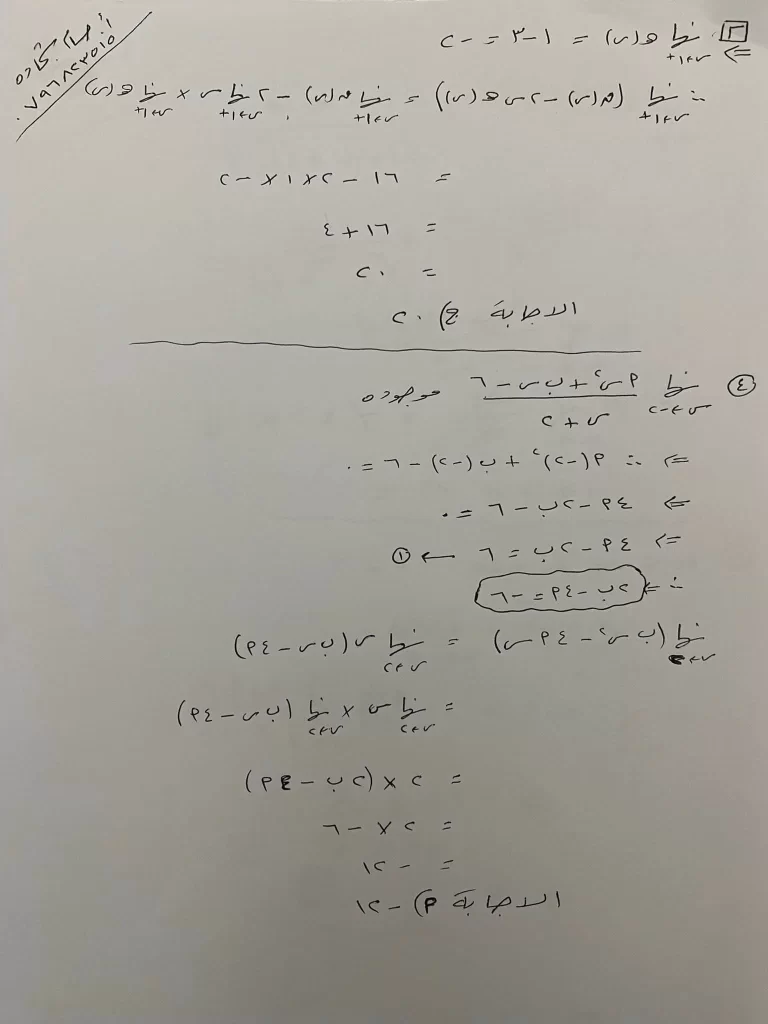 إيهاب كتاده
٠٧٩٦٨٢٣٥١٥
٣ ⇐ نهـا س←١+ هـ(س) = ١-٣ = -٢
∴ نهـا س←١+ (م(س) - ٢س هـ(س)) = نهـا س←١+ م(س) - ٢ نهـا س←١+ س × نهـا س←١+ هـ(س)
= ١٦ - ٢×١×-٢
= ١٦+٤
= ٢٠
الاجابة ج) ٢٠
④ نهـا س←-٢ (أس² + ب س - ٦)/(س + ٢) موجوده
⇐ ∴ أ(-٢)² + ب(-٢) - ٦ = ٠
⇐ ٤أ - ٢ب - ٦ = ٠
⇐ ٤أ - ٢ب = ٦ ← ①
∴ ⇐ ٢ب - ٤أ = -٦
نهـا س←٢ (ب س² - ٤أ س) = نهـا س←٢ س(ب س - ٤أ)
= نهـا س←٢ س × نهـا س←٢ (ب س - ٤أ)
= ٢ × (٢ب - ٤أ)
= ٢ × -٦
= -١٢
الاجابة أ) -١٢